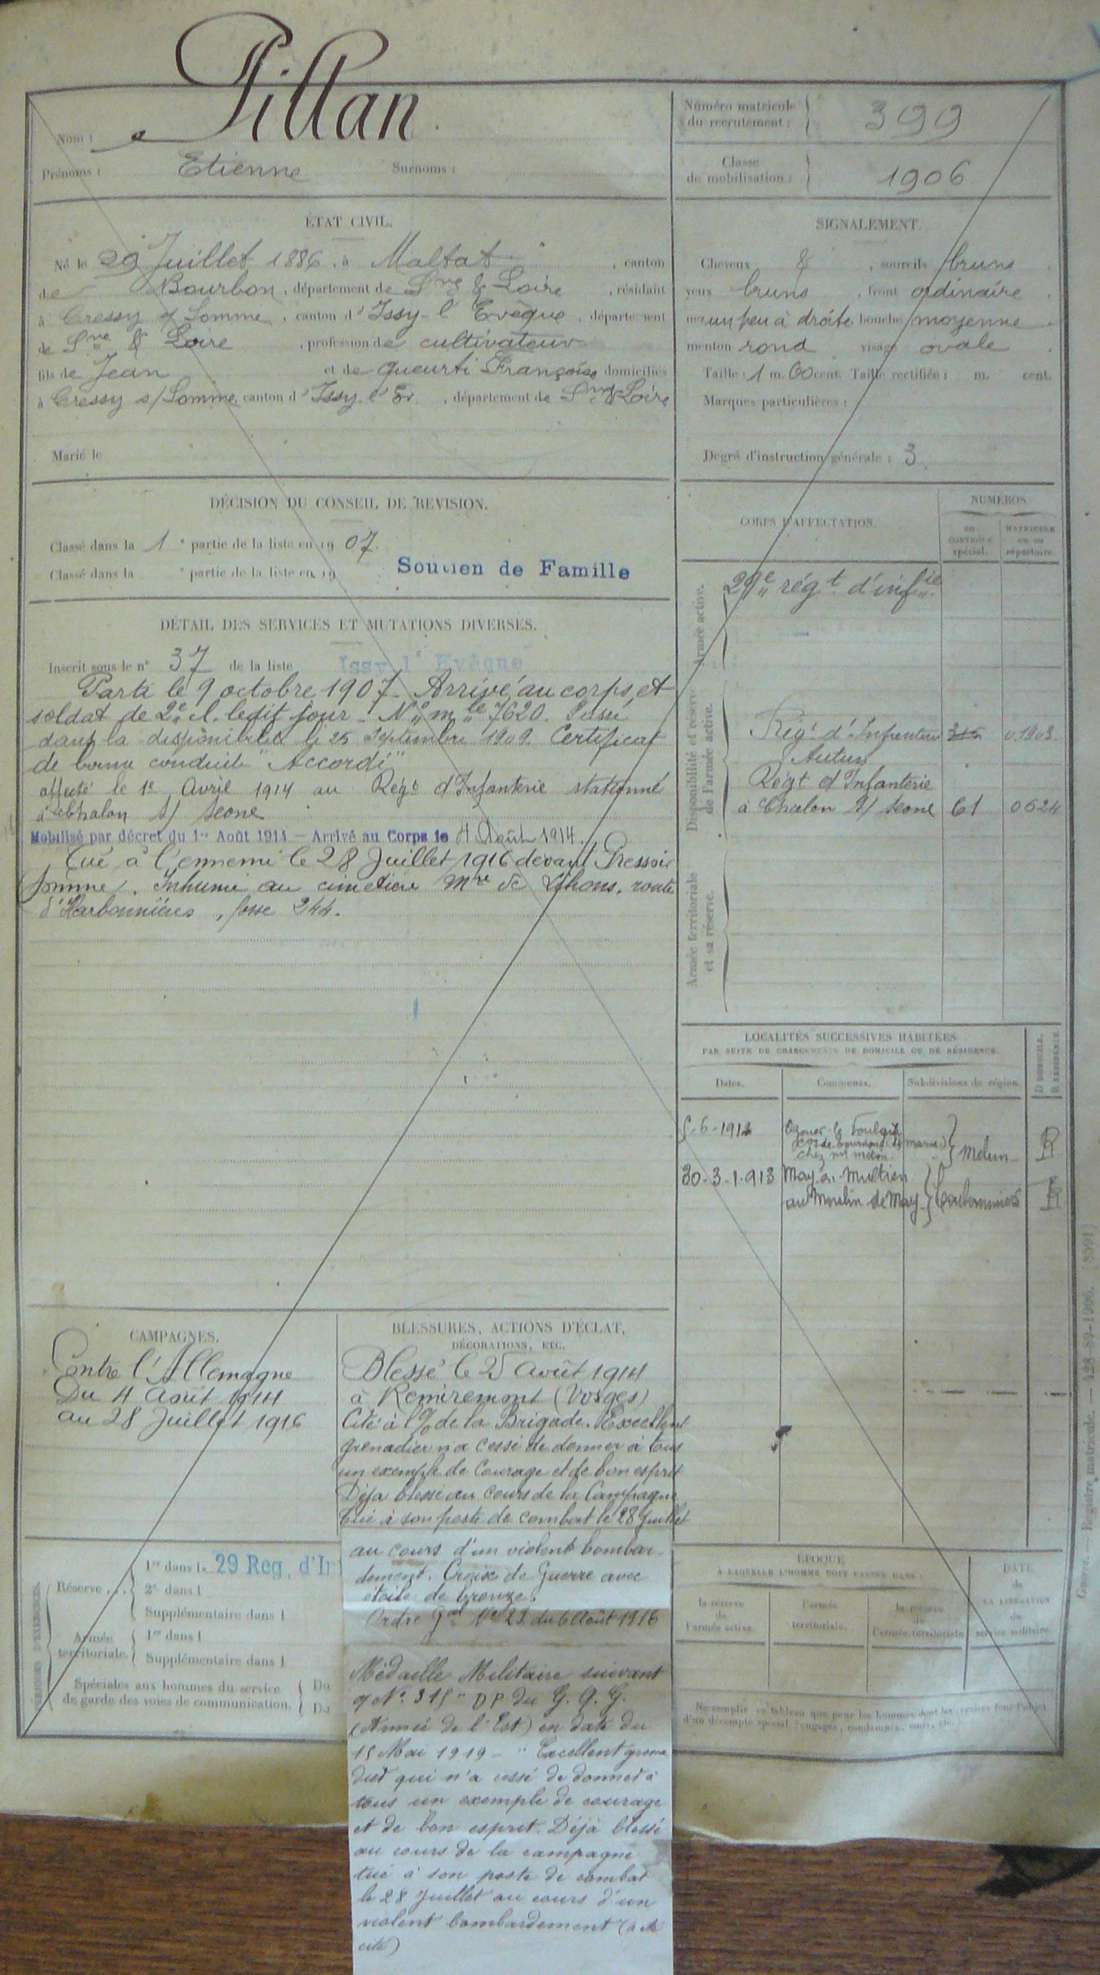 Nom : Pillan
Prénoms : Etienne Surnoms :
Numéro matricule du recrutement : 399
Classe de mobilisation : 1906
ÉTAT CIVIL.
Né le 29 Juillet 1886, à Maltat, canton
de Bourbon, département de Sne & Loire, résidant
à Cressy s/ Somme, canton d'Issy-l'Evêque, département
de Sne & Loire, profession de cultivateur
fils de Jean et de Françoise domiciliés
à Cressy s/ Somme canton d'Issy l'Ev., département de Sne & Loire
Marié le
SIGNALEMENT.
Cheveux &, sourcils bruns
yeux bruns, front ordinaire
nez un peu à droite bouche moyenne
menton rond visage ovale
Taille : 1 m. 60 cent. Taille rectifiée : m. cent.
Marques particulières :
Degré d'instruction générale : 3
DÉCISION DU CONSEIL DE REVISION.
Classé dans la 1e partie de la liste en 1907
Classé dans la e partie de la liste en 19
Soutien de Famille
DÉTAIL DES SERVICES ET MUTATIONS DIVERSES.
Inscrit sous le n° 37 de la liste Issy l'Evêque
Parti le 9 octobre 1907. Arrivé au corps et
soldat de 2e cl. ledit jour. No mle 7620. Passé
dans la disponibilité le 25 Septembre 1909. Certificat
de bonne conduite "Accordé"
affecté le 1er Avril 1914 au Régt d'Infanterie stationné
à Chalon s/ Saone
Mobilisé par décret du 1er Août 1914 — Arrivé au Corps le 4 Août 1914.
Tué à l'ennemi le 28 Juillet 1916 devant Pressoir
(Somme). Inhumé au cimetière Mre de Lihons, route
d'Harbonnières, fosse 244.
CORPS D'AFFECTATION.
NUMÉROS
au contrôle spécial.
matricule ou au répertoire.
Armée active.
29e régt d'infie
Disponibilité et réserve de l'armée active.
Régt d'Infanterie 01903
Autun
Régt d'Infanterie
à Chalon s/ Saone 61 0624
Armée territoriale et sa réserve.
LOCALITÉS SUCCESSIVES HABITÉES
PAR SUITE DE CHANGEMENTS DE DOMICILE OU DE RÉSIDENCE.
Dates. Communes. Subdivisions de région. D DOMICILE. R RÉSIDENCE.
5-6-1912 Ozouer-le-Voulgis
Melun R
30-3-1913 May en Multien
au Moulin de May Coulommiers R
CAMPAGNES.
Contre l'Allemagne
Du 4 août 1914
au 28 Juillet 1916
BLESSURES, ACTIONS D'ÉCLAT,
DÉCORATIONS, ETC.
Blessé le 25 août 1914
à Remiremont (Vosges)
Cité à l'O/ de la Brigade. Excellent
grenadier n'a cessé de donner à tous
un exemple de courage et de bon esprit
Déjà blessé au cours de la Campagne
tué à son poste de combat le 28 Juillet
au cours d'un violent bombar-
dement. Croix de Guerre avec
étoile de bronze.
Ordre Gal No 23 du 6 Août 1916
Médaille Militaire suivant
No 315 "DP du G. Q. G.
(Armée de l'Est) en date du
15 Mai 1919 – "Excellent grena
dier qui n'a cessé de donner à
tous un exemple de courage
et de bon esprit. Déjà blessé
au cours de la campagne
tué à son poste de combat
le 28 Juillet au cours d'un
violent bombardement (a été
cité)
Réserve 1re dans l 29 Reg. d'In
2e dans l
Supplémentaire dans l
Armée territoriale. 1re dans l
Supplémentaire dans l
Spéciales aux hommes du service
de garde des voies de communication. Du
Du
ÉPOQUE
À LAQUELLE L'HOMME DOIT PASSER DANS :
la réserve de l'armée active.
l'armée territoriale.
la réserve de l'armée territoriale.
DATE de LA LIBÉRATION du service militaire.
Registre matricule. — 128-89-1906.